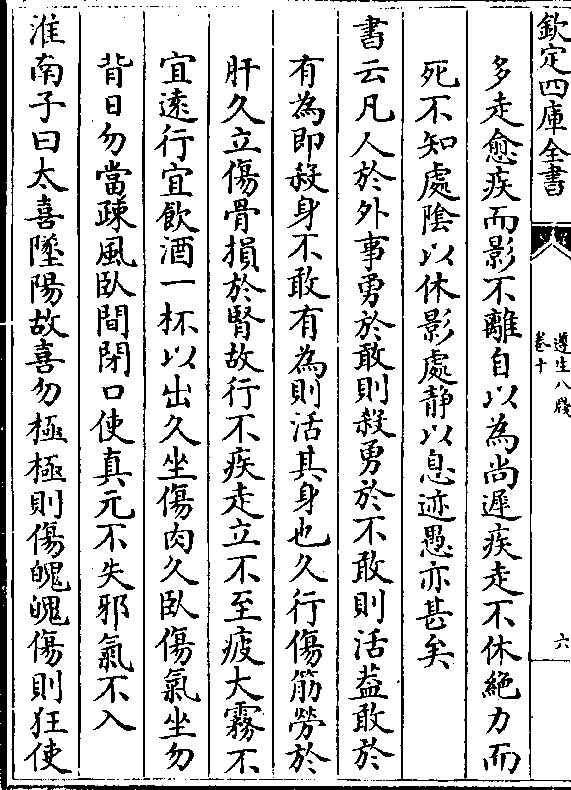 欽定四庫全書
遵生八牋
卷十
六
多走愈疾而影不離自以為尚遲疾走不休絶力而
死不知處隂以休影處静以息迹愚亦甚矣
書云凡人於外事勇於敢則殺勇於不敢則活葢敢於
有為即殺身不敢有為則活其身也久行傷筋勞於
肝久立傷骨損於腎故行不疾走立不至疲大霧不
宜遠行宜飲酒一杯以出久坐傷肉久臥傷氣坐勿
背日勿當踈風臥間閉口使真元不失邪氣不入
淮南子曰太喜墜陽故喜勿極極則傷魄魄傷則狂使